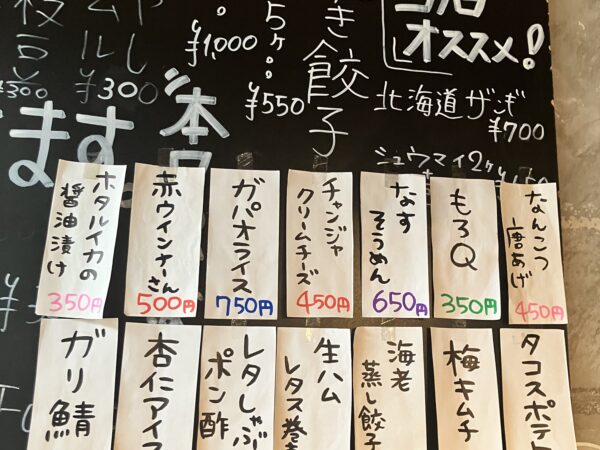 枝豆
¥300
ムル
¥300
¥1,000
5ヶ。。
¥550
き餃子
オススメ!
北海道ザンギ
¥700
シュウマイ2ヶ
ます
本日
ホタルイカの
醤油漬け
350円
赤ウインナーさん
500円
ガパオライス
750円
チャンジャ
クリームチーズ
450円
なす
そうめん
650円
もろQ
350円
なんこつ
唐あげ
450円
ガリ鯖
杏仁アイス
レタしゃぶ
ポン酢
生ハム
レタス巻き
海老
蒸し餃子
梅キムチ
タコスポテト